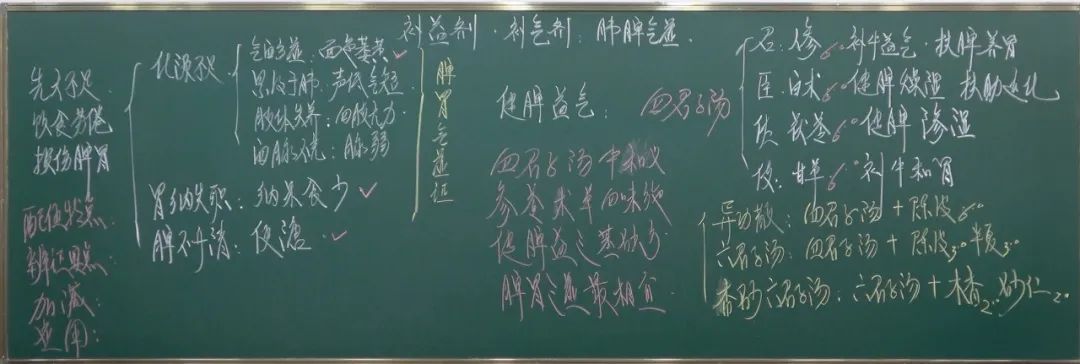 补益剂·补气剂:肺脾气虚.
先天不足
饮食劳倦
损伤脾胃
配伍特点:
辨证要点:
加减:
运用:
化源不足
气血亏虚:面色萎黄
累及于肺:声低气短
肢体失养:四肢无力
血脉不充:脉弱
胃纳失职:纳呆食少
脾不升清:便溏.
脾胃气虚证
健脾益气:四君子汤
四君子汤中和义
参苓术草四味施
健脾益气基础方
脾胃气虚最相宜
君:人参6°补中益气·扶脾养胃
臣:白术6°健脾燥湿 扶助运化
佐:茯苓6°健脾渗湿
使:甘草6°补中和胃
异功散:四君子汤+陈皮6°
六君子汤:四君子汤+陈皮3°半夏3°
香砂六君子汤:六君子汤+木香2°砂仁2°